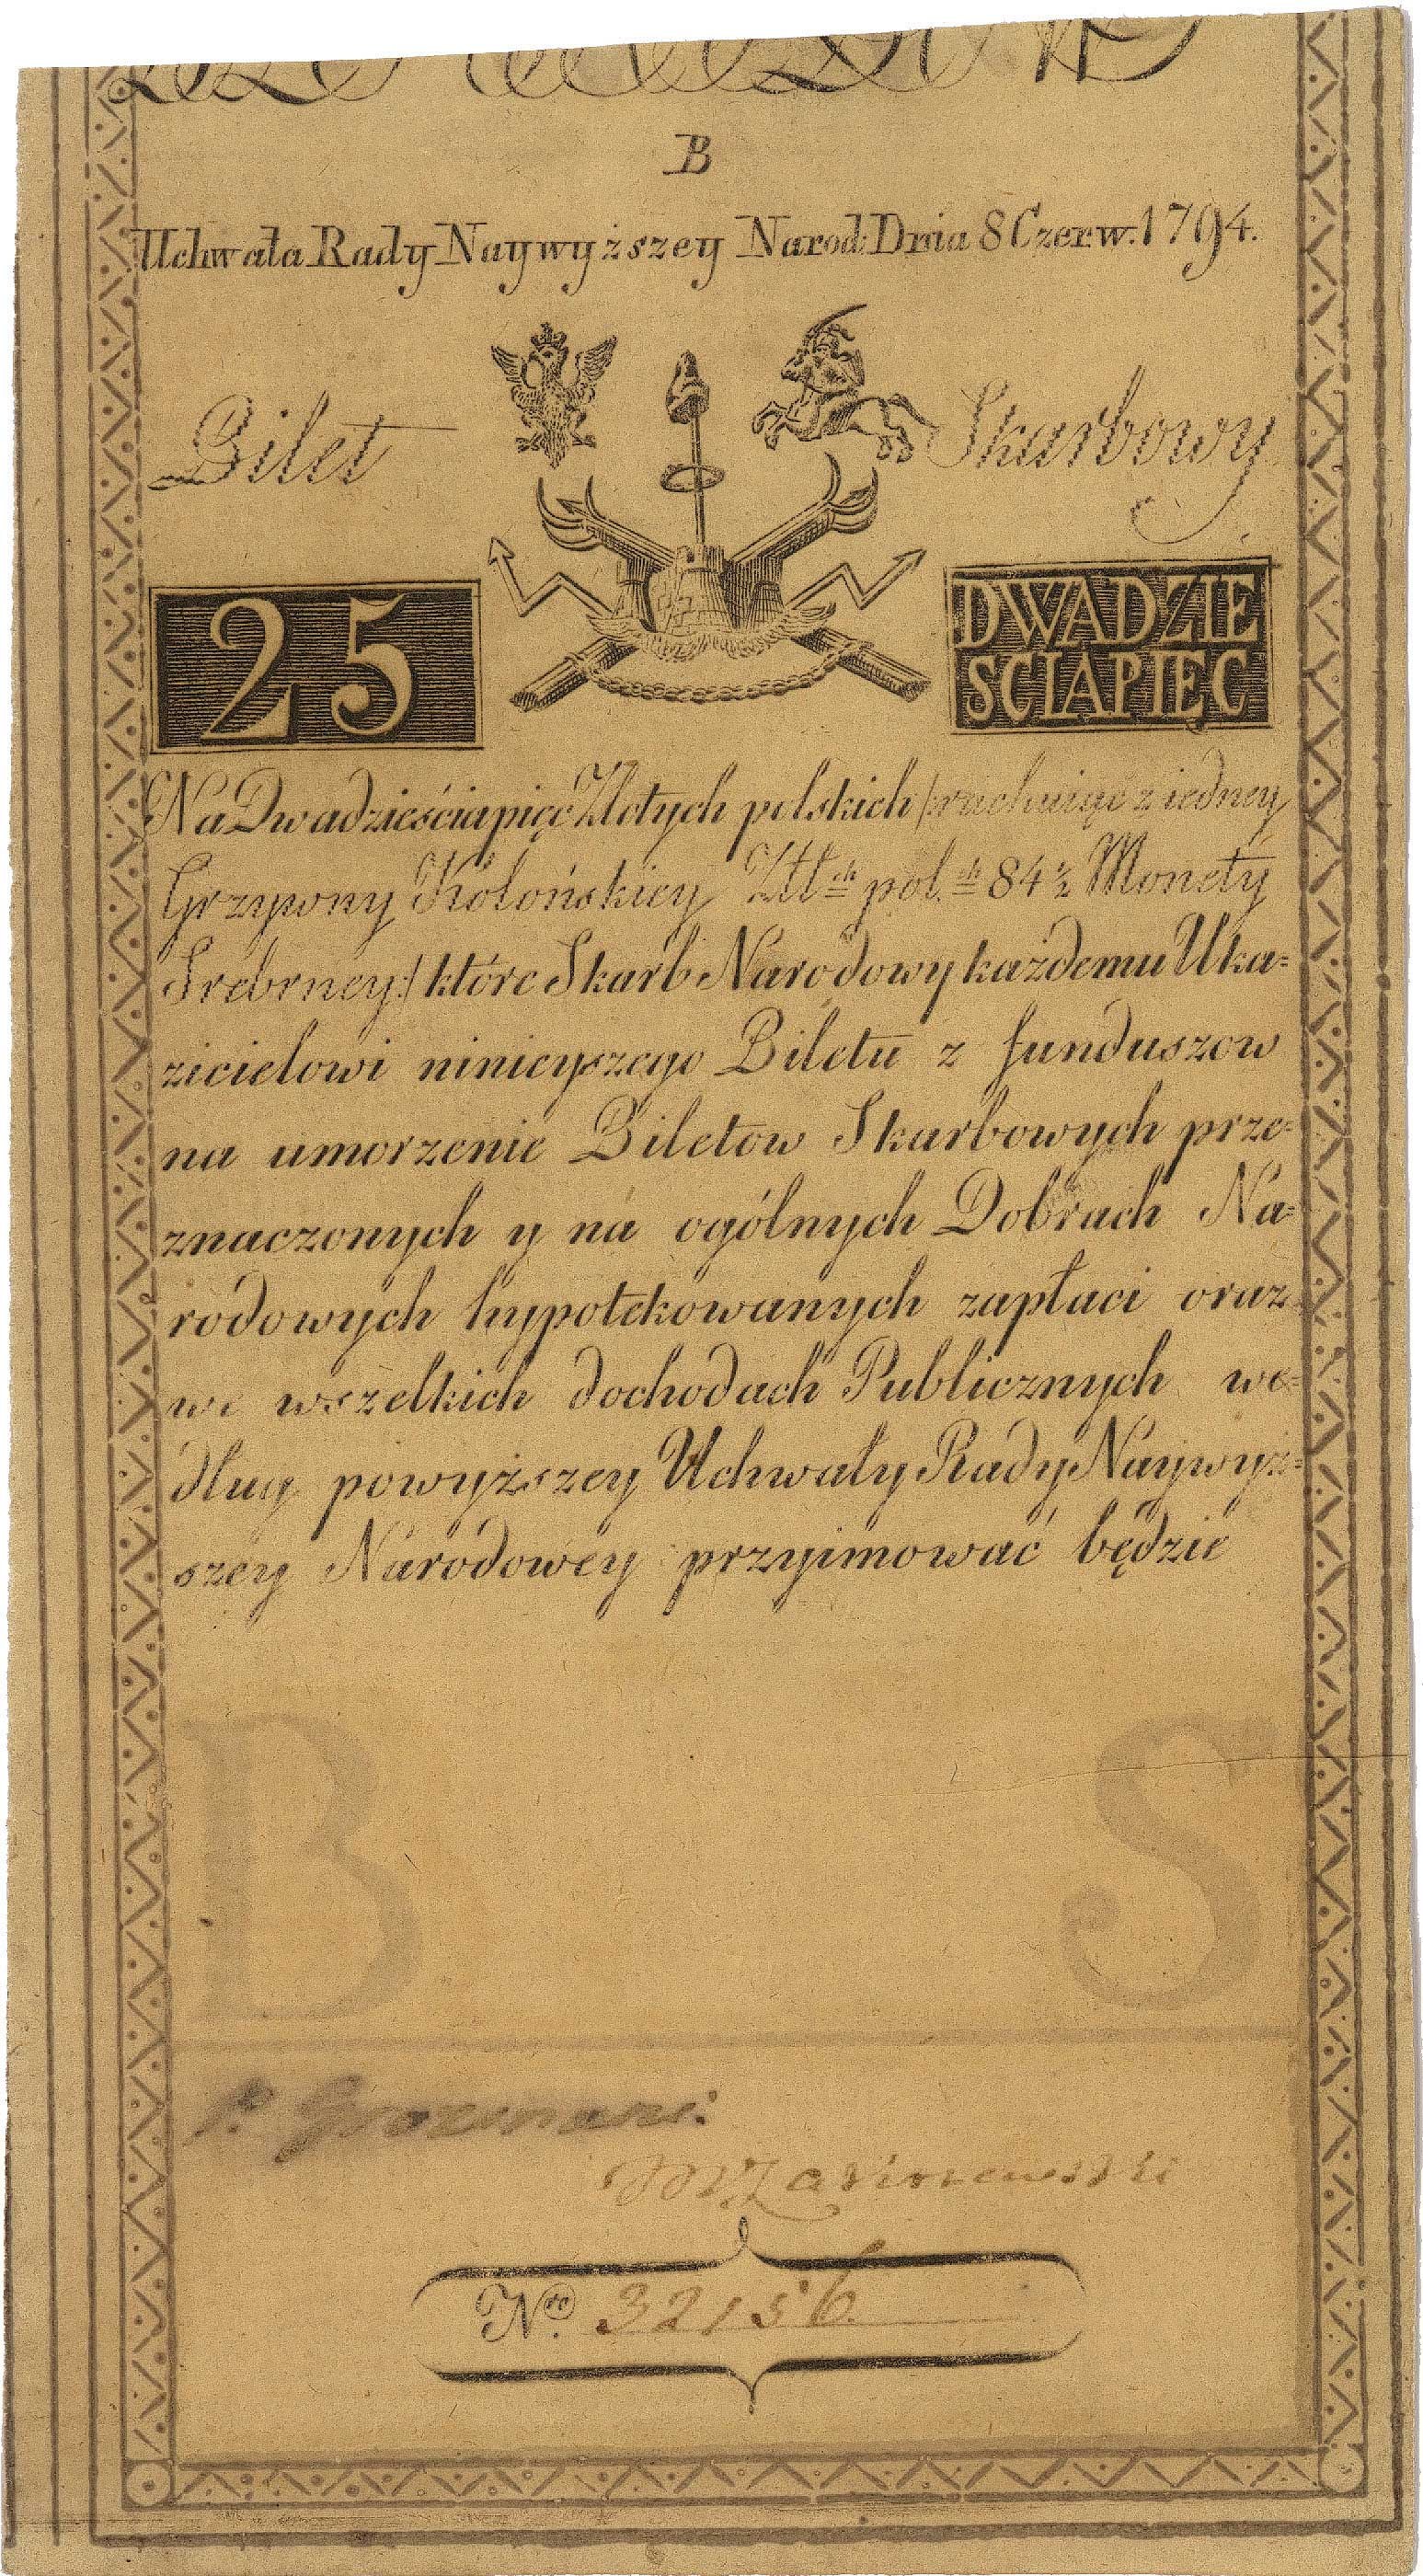 B
Uchwała Rady Naywyższey Narod: Dnia 8 Czerw. 1794.
Bilet Skarbowy
25
DWADZIE
SCIĄPIĘC
Na Dwadzieściapięć Złotych polskich /:rachuiąc z iedney
Grzywny Kolońskiey Złł.ch pol.ch 84 1/2 Monety
Srebrney:/ które Skarb Narodowy każdemu Uka=
zicielowi ninieyszego Biletu z funduszow
na umorzenie Biletow Skarbowych prze=
znaczonych y na ogólnych Dobrach Na=
rodowych hypotekowanych zapłaci oraz
we wszelkich dochodach Publicznych we=
dług powyższey Uchwały Rady Naywyż=
szey Narodowey przyimować będzie
B S
Nro. 32156.